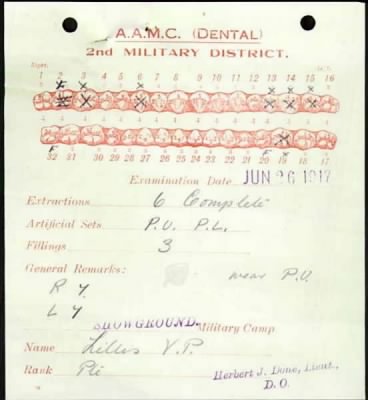 A.A.M.C. (DENTAL)
2nd MILITARY DISTRICT.
Right. Left.
1 2 3 4 5 6 7 8 9 10 11 12 13 14 15 16
32 31 30 29 28 27 26 25 24 23 22 21 20 19 18 17
Examination Date JUN 26 1917
Extractions 6 Complete
Artificial Sets P.U. P.L.
Fillings 3
General Remarks: wear P.U.
R Y.
L Y
SHOWGROUND. Military Camp
Name Lilles V.P.
Rank Pte
Herbert J. Done, Lieut.,
D.O.